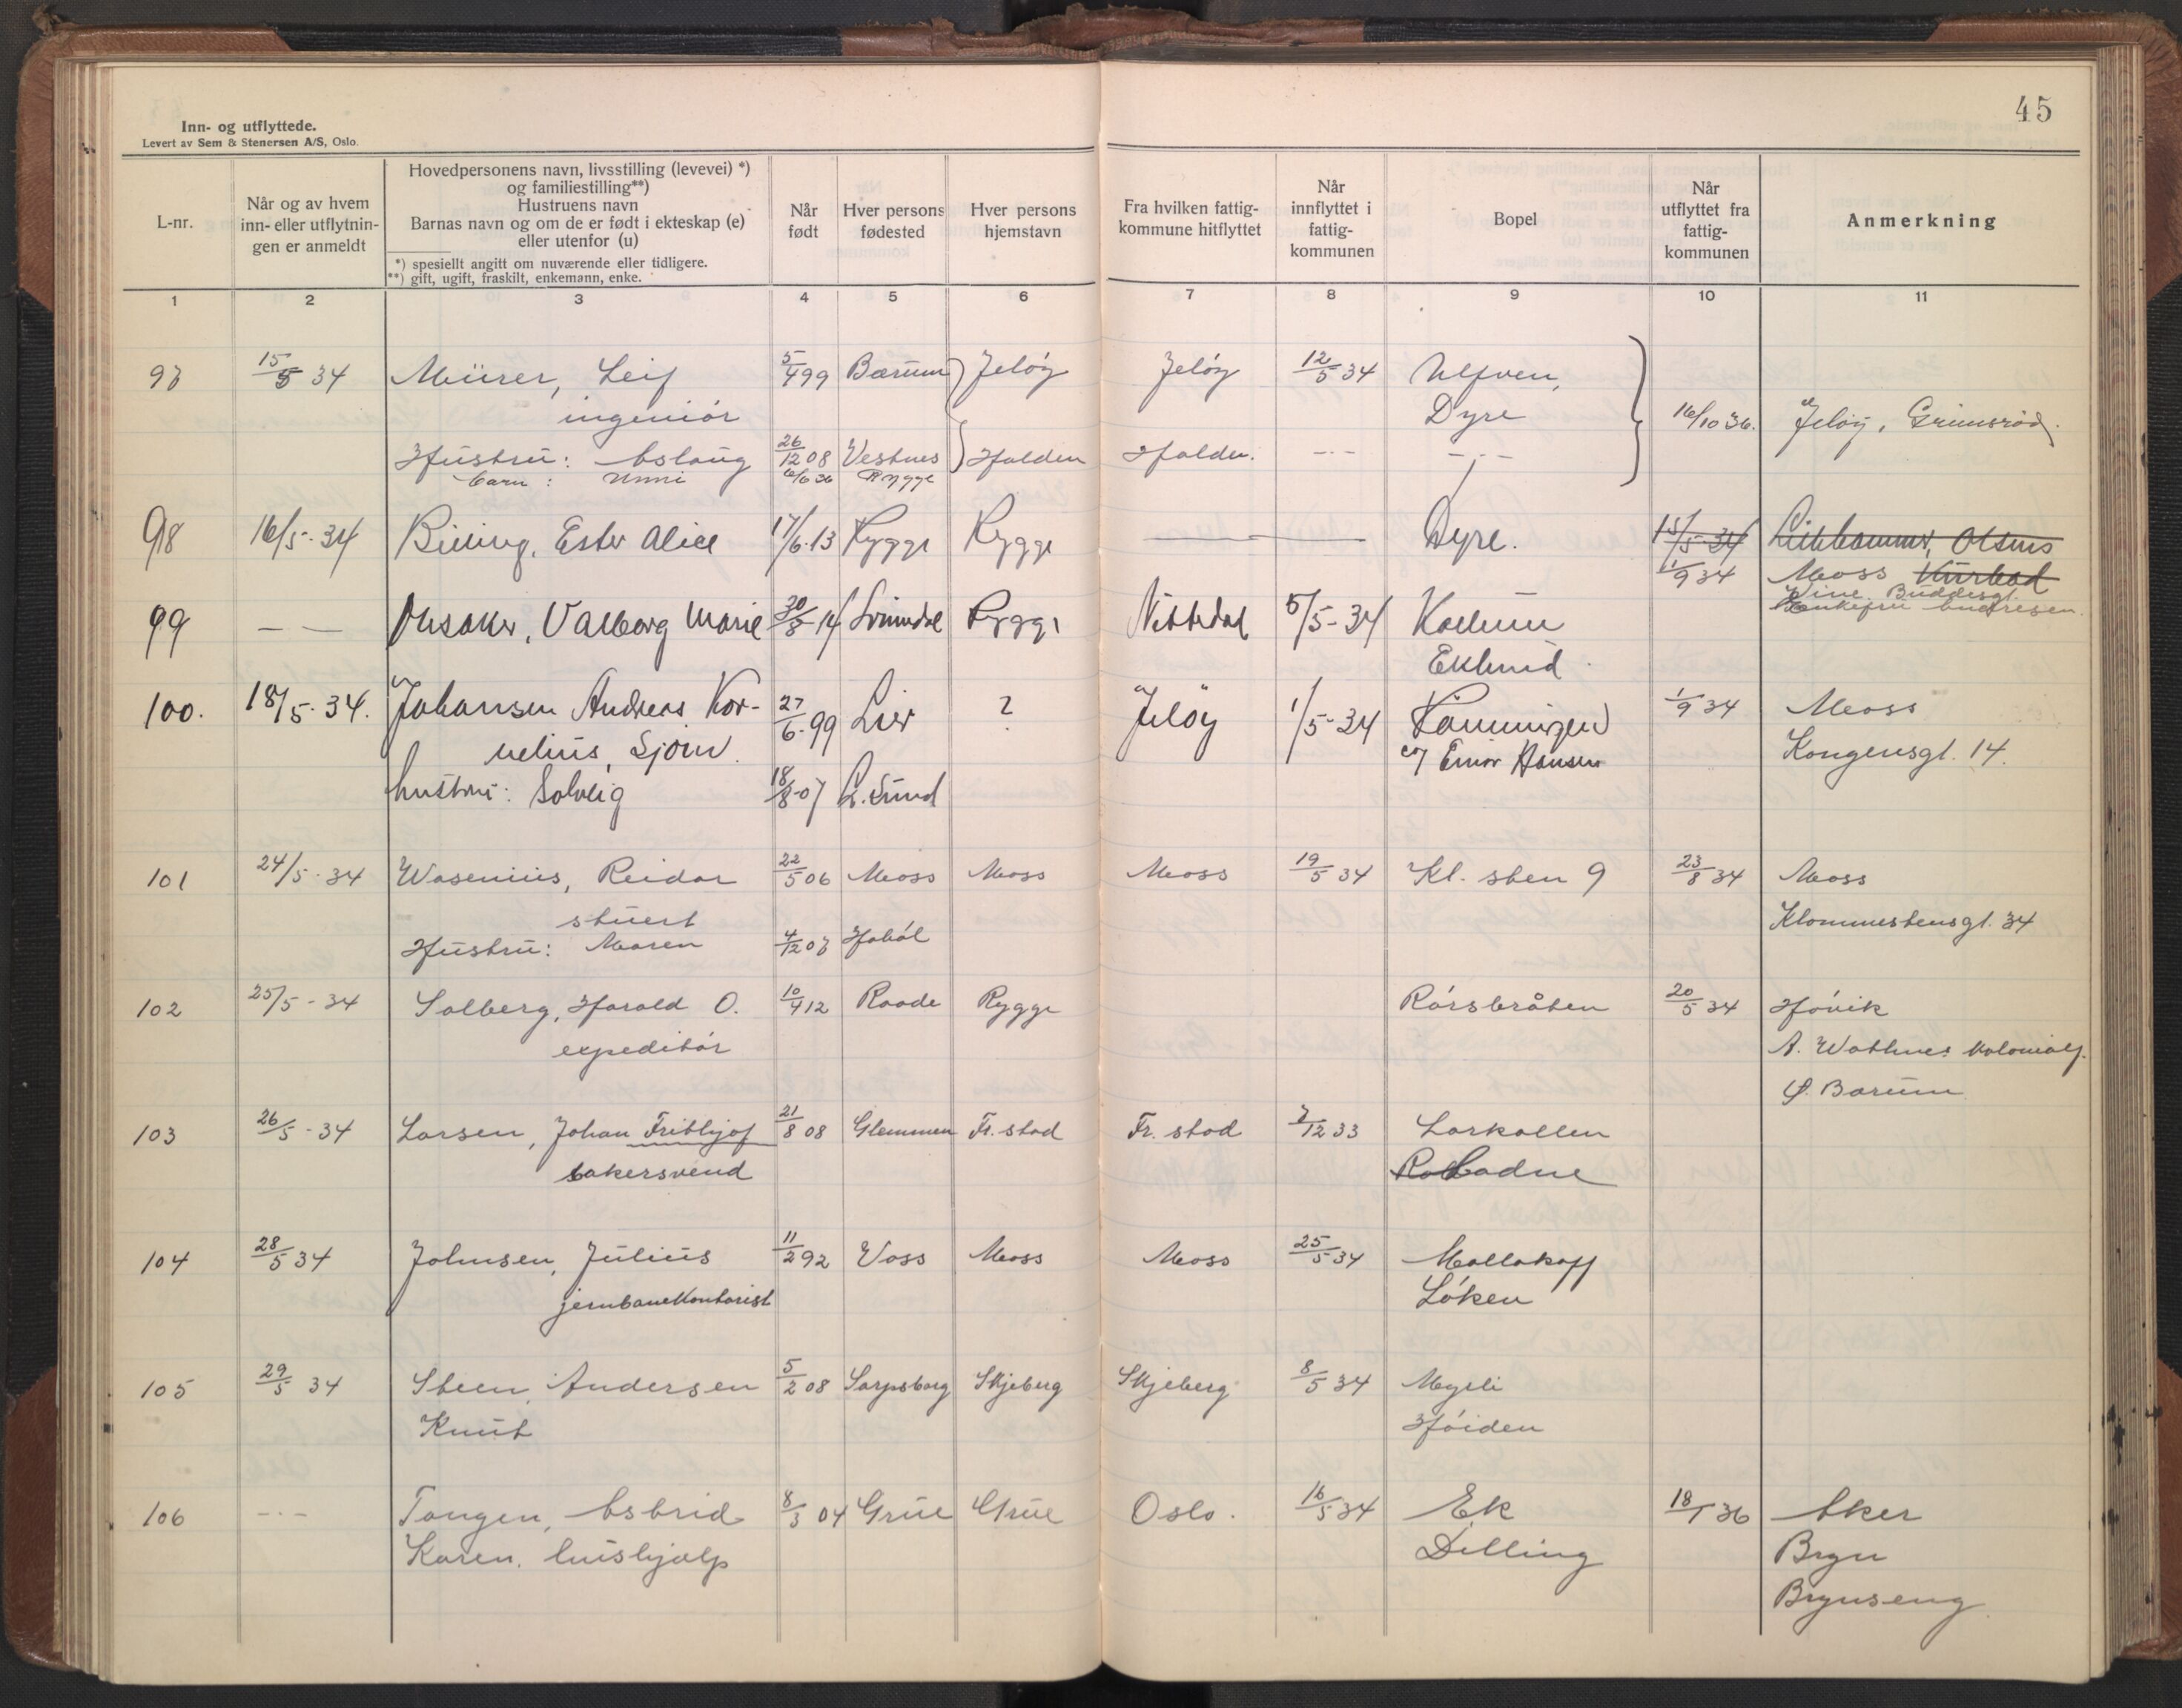 45
Inn- og utflyttede.
Levert av Sem & Stenersen A/S, Oslo.
L-nr.
Når og av hvem inn- eller utflytnin-gen er anmeldt
Hovedpersonens navn, livsstilling (levevei) *)
og familiestilling**)
Hustruens navn
Barnas navn og om de er født i ekteskap (e)
eller utenfor (u)
*) spesiellt angitt om nuværende eller tidligere.
**) gift, ugift, fraskilt, enkemann, enke.
Når født
Hver persons fødested
Hver persons hjemstavn
Fra hvilken fattig-kommune hitflyttet
Når innflyttet i fattig-kommunen
Bopel
Når utflyttet fra fattig-kommunen
Anmerkning
1 2 3 4 5 6 7 8 9 10 11
97 15/5 34 Mürer, Leif 5/4 99 Bærum Jeløy Jeløy 12/5 34 Ulfven,
ingeniør Dyre 16/10 36. Jeløy, Grimsrød.
Hustru: Aslaug 26/12 08 Vestnes Halden Halden. -·- -·-
barn: Unni 6/6 36 Rygge
98 16/5-34 Billing, Ester Alice 17/6-13 Rygge Rygge Dyre. 15/5-34 Lillehammer, Olsens
1/9 34 Moss Kurbad
99 — — Valborg Marie 30/8-14 Svinndal Rygge Nittedal 5/5-34 Kallum
Eklund
100. 18/5-34. Johansen Andreas Kor- 27/6-99 Lier ? Jeløy 1/5-34 1/9 34 Moss
nelius, Sjøm. c/o Einar Hansen Kongensgt. 14.
hustru: Solveig 18/8-07
101 24/5-34 Wasenius, Reidar 22/5 06 Moss Moss Moss 19/5 34 Kl. sten 9 23/8 34 Moss
stuert Klommestensgt. 34
Hustru: Maren 4/12 07 Hobøl
102 25/5-34 Solberg, Harald O. 10/4 12 Raade Rygge Rørsbråten 20/5 34 Høvik
expeditør A. Wathnes kolonialf.
Ø. Bærum
103 26/5-34 Larsen, Johan Frithjof 21/8 08 Glemmen Fr. stad Fr. stad 7/12 33 Larkollen
bakersvend
104 28/5 34 Johnsen, Julius 11/2 92 Voss Moss Moss 25/5 34 Mallakoff
jernbanekontorist Løken
105 29/5 34 Steen, Andersen 5/2 08 Sarpsborg Skjeberg Skjeberg 8/5 34 Myrli
Knut Høiden
106 -·- Tangen, Astrid 8/3 04 Grue Grue Oslo. 16/5 34 Ek 18/1 36 Aker
Karen. hushjælp Dilling Bryn
Brynseng